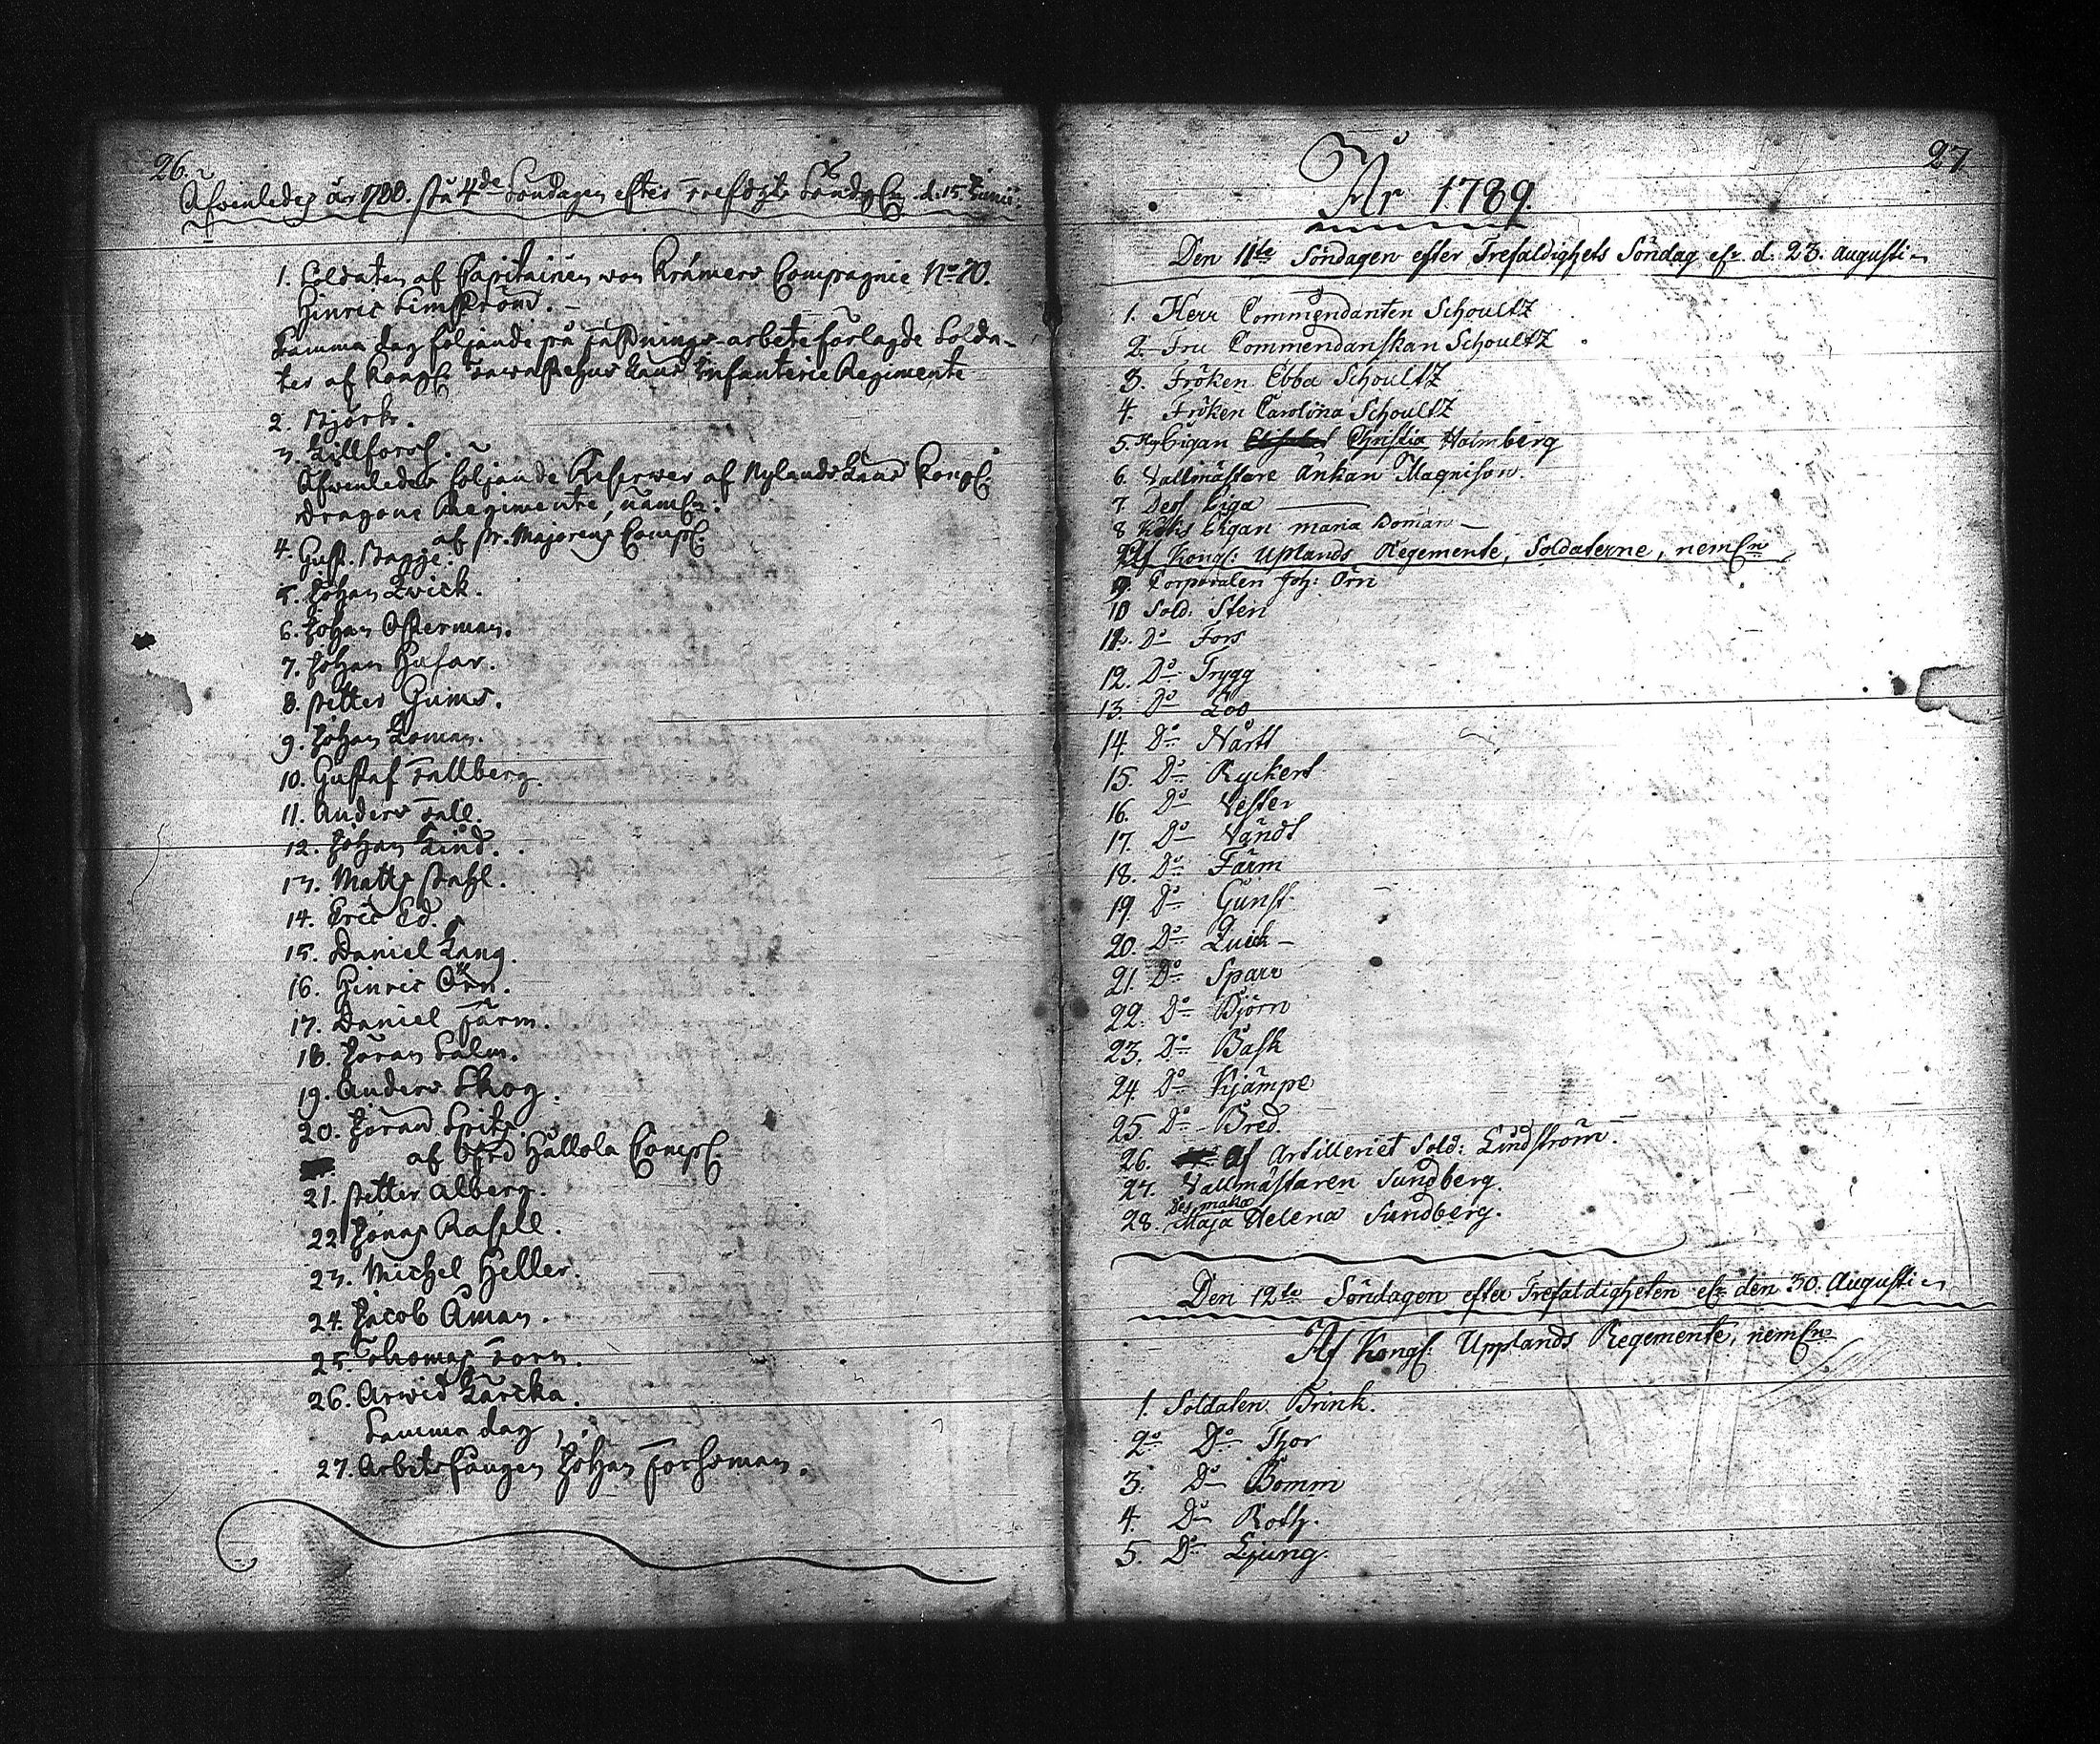 26.
Äfwenledes år 1788. på 4de Söndagen efter Trefdgts Söndg d. 15 Junii.
1. Soldaten af Capitainen von Krämers Compagnie No 70.
Hinric Limström.
Samma dag följande på fästnings-arbete förlagde Solda-
ter af Kongl Tawastehus Läns Infanterie Regimente
2. Björk.
3. Lillfors.
Äfwenledes följande Reserwer af Nylands Läns Kongl.
Dragone Regimente, näml.
af Pr. Majorens Comp.
4. Gust. Bagge.
5. Johan Qwick.
6. Johan Österman.
7. Johan Husar.
8. Petter Gums.
9. Johan Loman.
10. Gustaf Fallberg.
11. Anders Fall.
12. Johan Lind.
13. Matts Stahl.
14. Eric Ed.
15. Daniel Lång.
16. Hinric Örn.
17. Daniel Färm.
18. Jöran Salm.
19. Anders Skog.
20. Jöran Spits.
af Hållola Comp.
21. Petter Alberg.
22. Jonas Rasell.
23. Michel Heller.
24. Jacob Åman.
25. Thomas Torn.
26. Arwid Lärcka.
Samma dag,
27. Arbetsfången Johan Forssman.
27
År 1789.
Den 11te Söndagen efter Trefaldighets Söndag d. 23. Augusti
1. Herr Commendanten Schoultz
2. Fru Commendanskan Schoultz
3. Fröken Ebba Schoultz
4. Fröken Carolina Schoultz
5. Pigan Christia Holmberg
6. Vallmästare Änkan Magnison.
7. Dess Piga
8 Pigan Maria Boman
Af Kongl: Uplands Regemente, Soldaterne, neml
9. Corporalen Joh: Örn
10 Sold: Sten
11. Do Fors
12. Do Trygg
13. Do Loo
14. Do Nårtt
15. Do Ryckert
16 Do Vester
17. Do Vändt
18. Do Färm
19 Do Gunst
20. Do Quick
21. Do Sparr
22. Do Björn
23. Do Bask
24 Do Kjämpe
25. Do Bred.
26. Af Artilleriet Sold: Lindström.
27. Vallmästaren Sundberg.
Des maka
28. Maja Helena Sundberg.
Den 12te Söndagen efter Trefaldigheten den 30. Augusti
Af Kongl: Upplands Regemente, neml
1. Soldaten Brink.
2 Do Thor
3. Do Bomm
4. Do Roth.
5. Do Ljung.